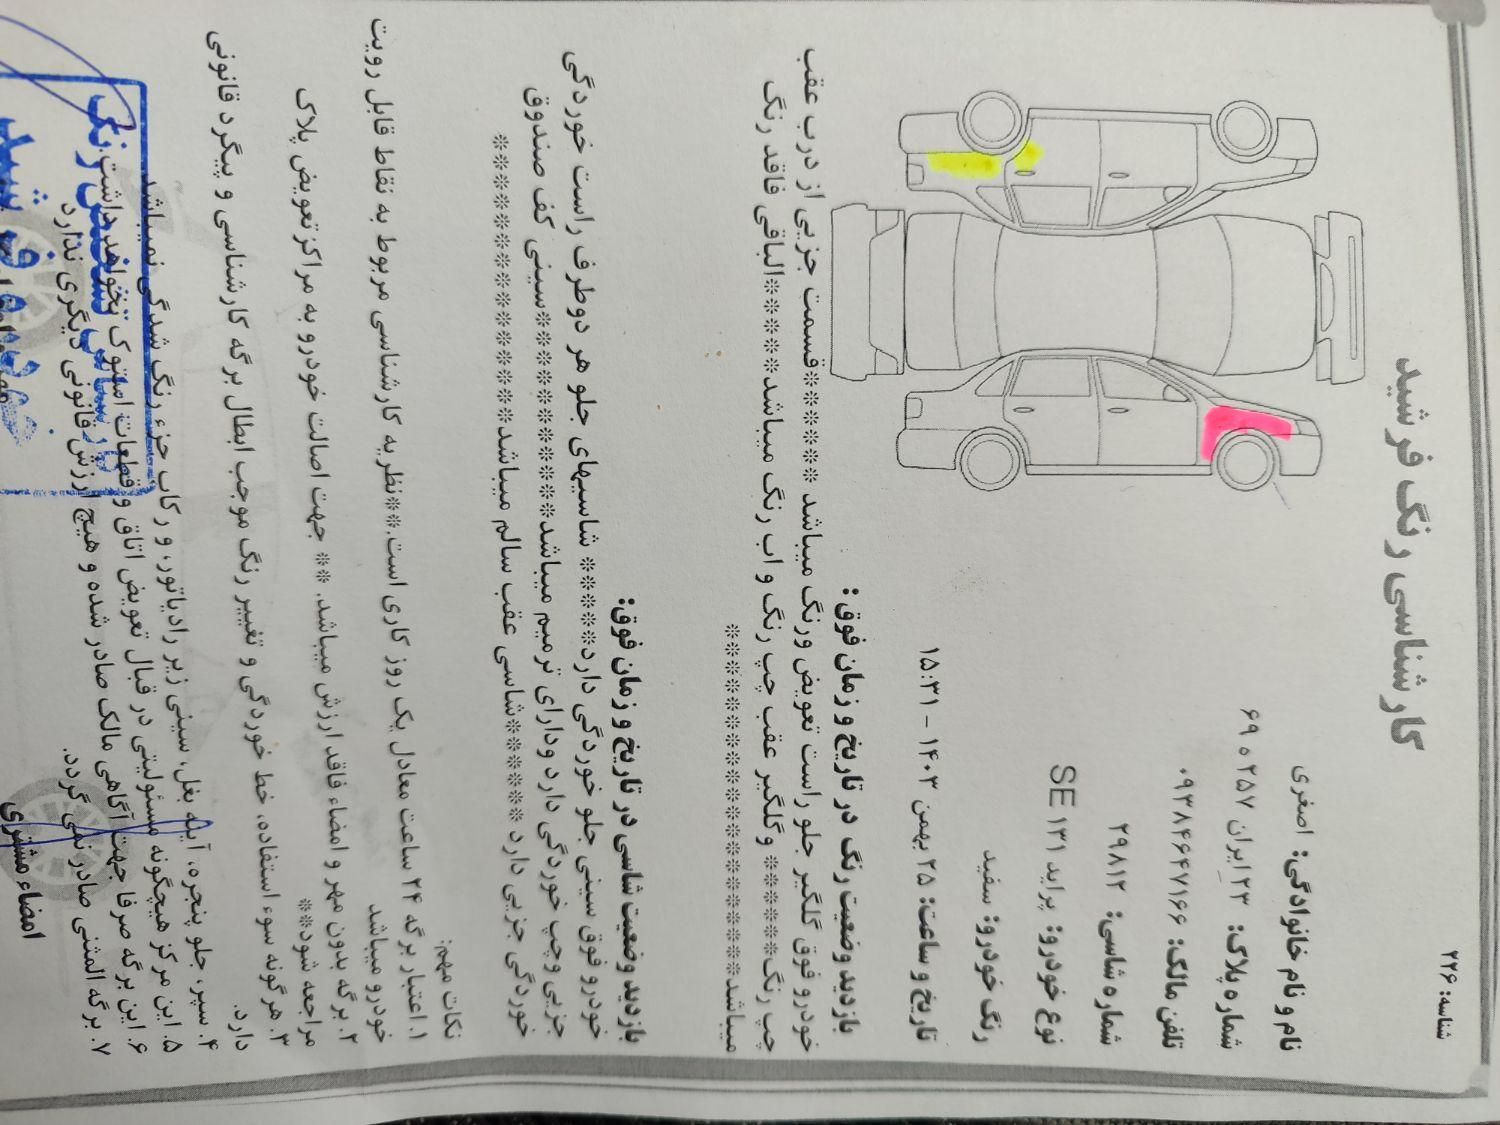 شناسه: ۲۲۶
کارشناسی رنگ فرشید
نام و نام خانوادگی: اصغری
شماره پلاک: ۲۳ ایران ۲۵۷ ه ۶۹
تلفن مالک: ۰۹۳۸۴۶۴۷۱۶۶
شماره شاسی: ۲۹۸۱۲
نوع خودرو: پراید ۱۳۱ SE
رنگ خودرو: سفید
تاریخ و ساعت: ۲۵ بهمن ۱۴۰۳ - ۱۵:۳۱
بازدید وضعیت رنگ در تاریخ و زمان فوق:
خودرو فوق گلگیر جلو راست تعویض ورنگ میباشد ******قسمت جزیی از درب عقب
چپ رنگ****** وگلگیر عقب چپ رنگ و اب رنگ میباشد******الباقی فاقد رنگ
میباشد**********************
بازدید وضعیت شاسی در تاریخ و زمان فوق:
خودرو فوق سینی جلو خوردگی دارد***** شاسیهای جلو هر دوطرف راست خوردگی
جزیی وچپ خوردگی دارد ودارای ترمیم میباشد************سینی کف صندوق
خوردگی جزیی دارد******شاسی عقب سالم میباشد******************
نکات مهم:
۱. اعتبار برگه ۲۴ ساعت معادل یک روز کاری است.**نظریه کارشناسی مربوط به نقاط قابل رویت
خودرو میباشد
۲. برگه بدون مهر و امضاء فاقد ارزش میباشد. ** جهت اصالت خودرو به مراکز تعویض پلاک
مراجعه شود**
۳. هرگونه سوء استفاده، خط خوردگی و تغییر رنگ موجب ابطال برگه کارشناسی و پیگرد قانونی
دارد.
۴. سپر، جلو پنجره، آینه بغل، سینی زیر رادیاتور، و رکاب جزء رنگ شدگی نمیباشد
۵. این مرکز هیچگونه مسئولیتی در قبال تعویض اتاق و قطعات استوک نخواهد داشت.
۶. این برگه صرفا جهت آگاهی مالک صادر شده و هیچ ارزش قانونی دیگری ندارد
۷. برگه المثنی صادر نمی گردد.
امضاء مشتری
کارشناسی رنگ
فرشید